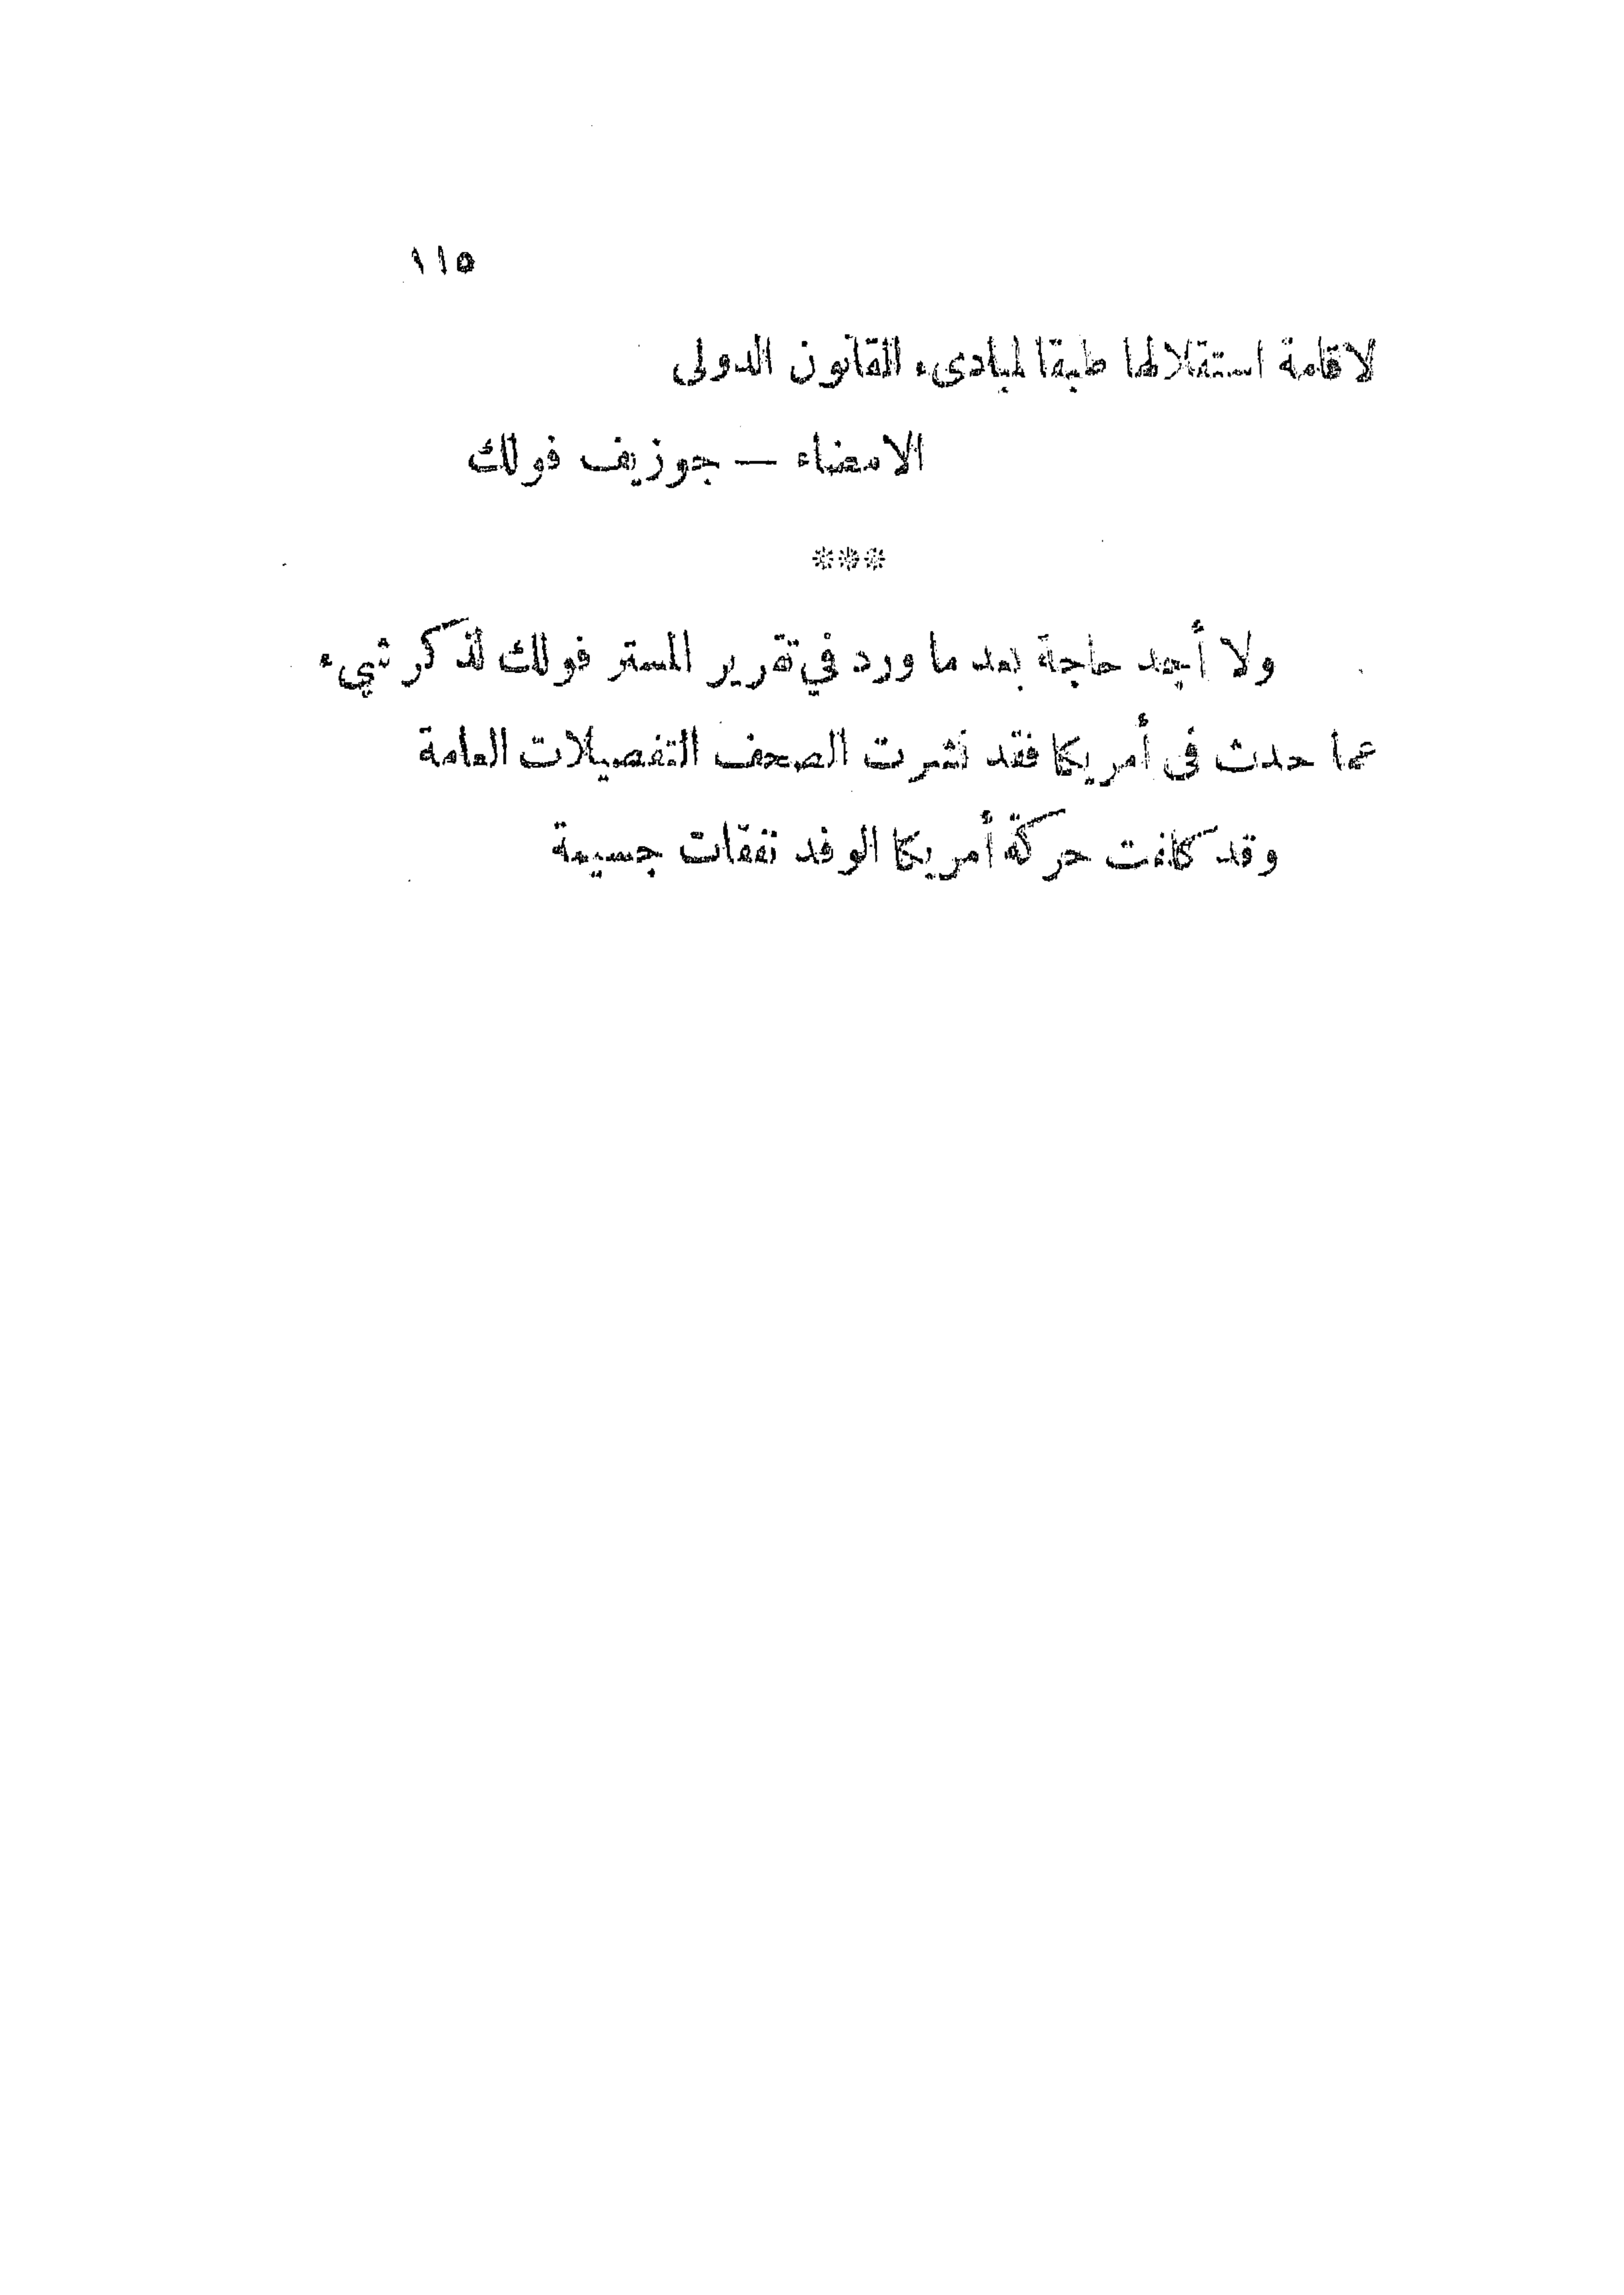 ١١٥
لاقامة استقلالها طبقا لمبادىء القانون الدولى
الامضاء — جوزيف فولك
***
ولا أجد حاجة بعد ما ورد في تقرير المستر فولك لذكر شيء
عما حدث فى أمريكا فقد نشرت الصحف التفصيلات العامة
وقد كلفت حركة أمريكا الوفد نفقات جسيمة